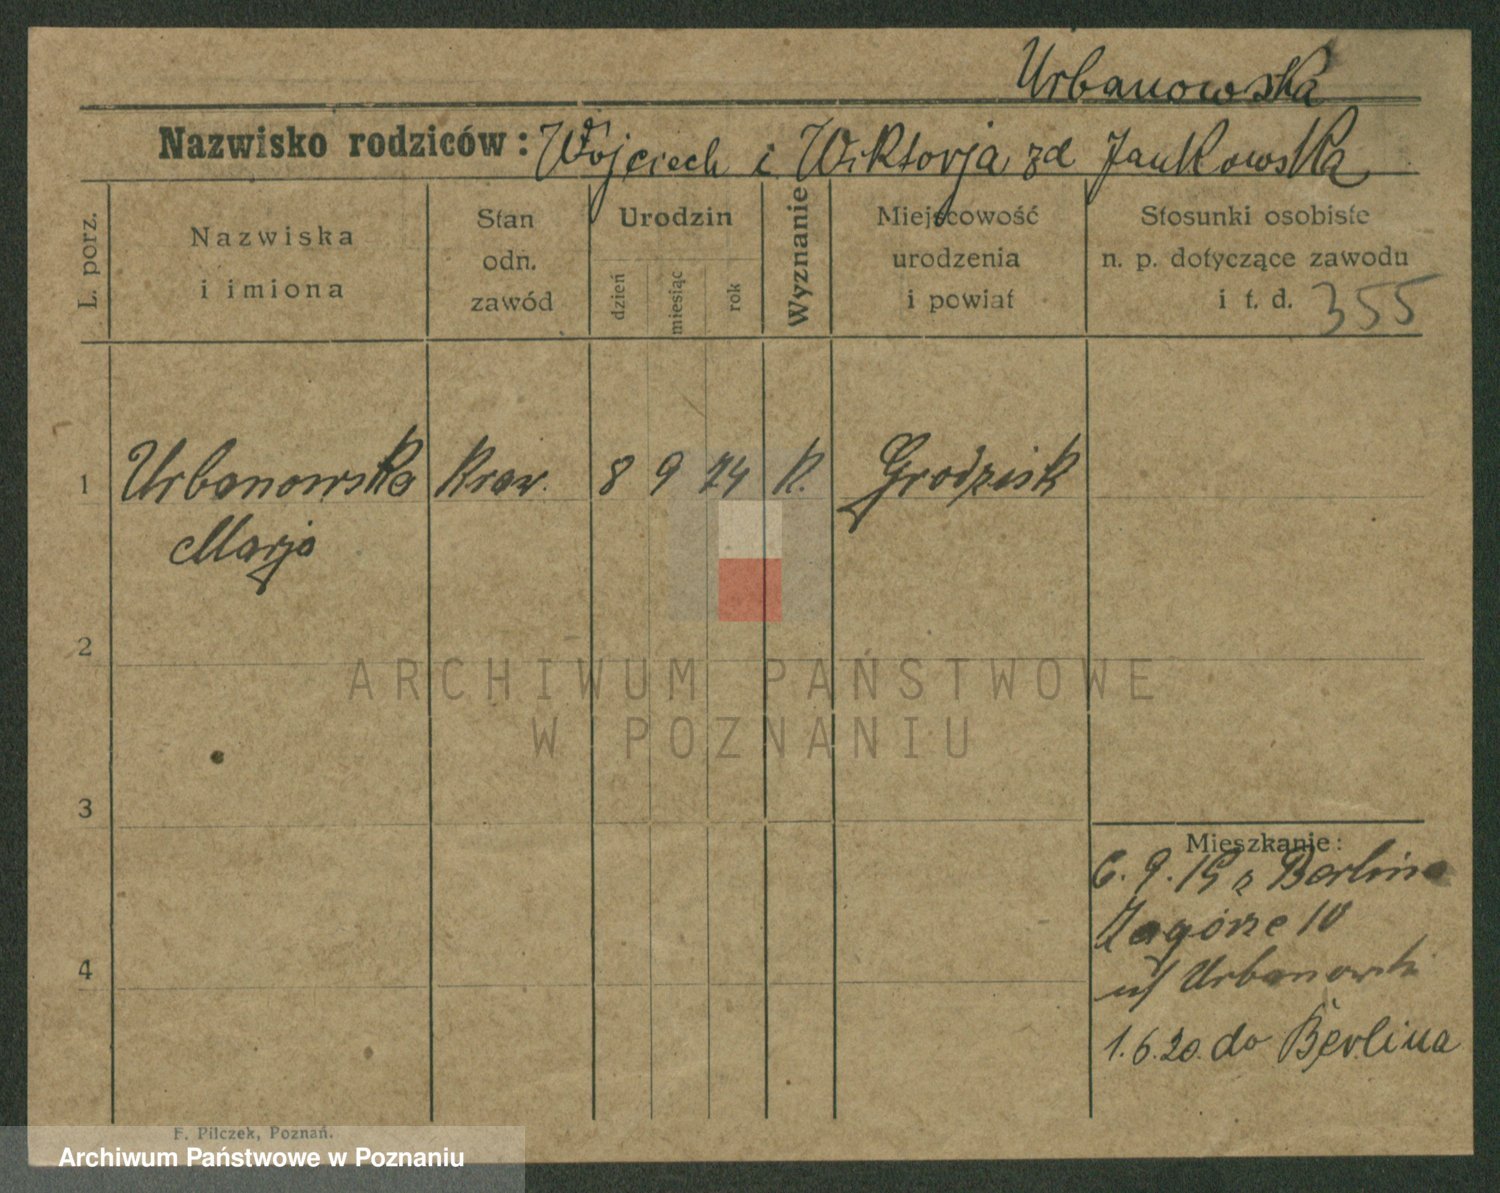 Urbanowska
Nazwisko rodziców: Wojciech i Wiktorja zd Jankowska
L. porz.
Nazwiska
i imiona
Stan
odn.
zawód
Urodzin
dzień
miesiąc
rok
Wyznanie
Miejscowość
urodzenia
i powiat
Stosunki osobiste
n. p. dotyczące zawodu
i t. d. 355
1 Urbanowska Kraw. 8 9 74 K. Grodzisk
Marja
2
3
4
Mieszkanie:
6. 9. 19 z Berlina
Zagórze 10
u/ Urbanowski
1.6.20. do Berlina
F. Pilczek, Poznań.
ARCHIWUM PAŃSTWOWE
W POZNANIU
Archiwum Państwowe w Poznaniu